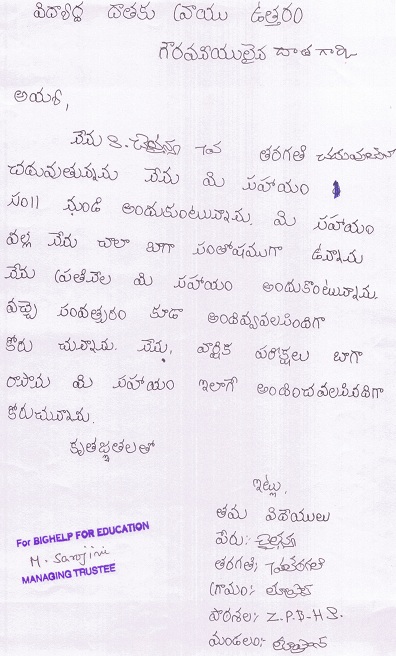 విద్యార్ధి దాతకు వ్రాయు ఉత్తరం
గౌరవనీయులైన దాత గారికి
అయ్యా,
నేను S. 7వ తరగతి
చదువుతున్నాను నేను మి సహాయం
సం॥ నుండి అందుకుంటున్నాను. మి సహాయం
వల్ల నేను చాలా బాగా సంతోషముగా ఉన్నాను
నేను ప్రతినెల మి సహాయం అందుకొంటున్నాను.
వచ్చె సంవత్సరం కూడా అందివ్వవలసిందిగా
కోరు చున్నాను. నేను, వార్షిక పరీక్షలు బాగా
రాసాను మి సహాయం ఇలాగే అందించవలసినదిగా
కోరుచున్నాను.
కృతజ్ఞతలతో
ఇట్లు,
తమ విధేయులు
పేరు:-
తరగతి; 7వతరగతి
గ్రామం:-
పాఠశాల:- Z.P.B.H.S.
మండలం:-
For BIGHELP FOR EDUCATION
M. Sarojini
MANAGING TRUSTEE